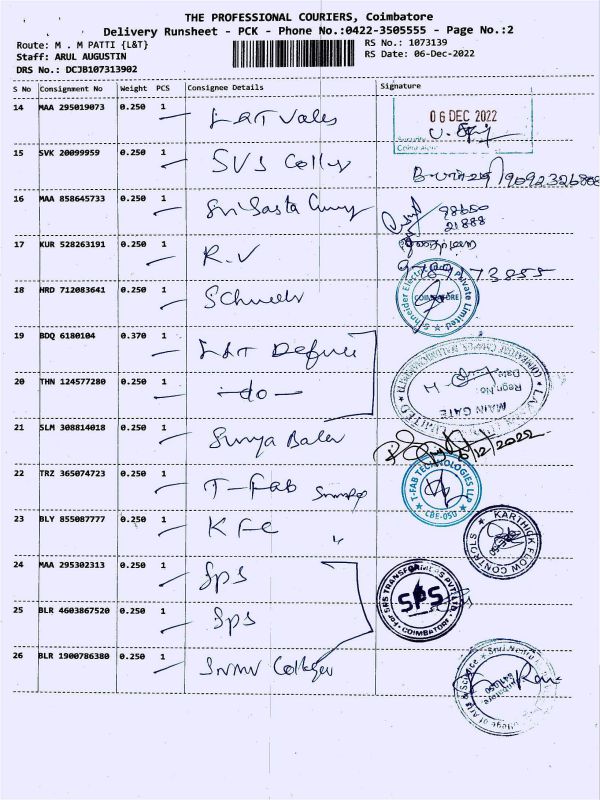 THE PROFESSIONAL COURIERS, Coimbatore
Delivery Runsheet - PCK - Phone No.:0422-3505555 - Page No.:2
Route: M . M PATTI {L&T}
RS No.: 1073139
Staff: ARUL AUGUSTIN
RS Date: 06-Dec-2022
DRS No.: DCJB107313902
S No Consignment No Weight PCS Consignee Details Signature
14 MAA 295019073 0.250 1 L&T Vales
06 DEC 2022
Coimbatore
15 SVK 20099959 0.250 1 SVS Colleg
16 MAA 858645733 0.250 1 Sri Sasta
98650
21888
17 KUR 528263191 0.250 1 R.V
18 HRD 712083641 0.250 1 Schneider
Schneider Electric Private Limited
COIMBATORE
19 BDQ 6180104 0.370 1 L&T Defence
20 THN 124577280 0.250 1 -do-
MAIN GATE
Regn No:
Date:
21 SLM 308814018 0.250 1 Surya Balev
6/12/2022
22 TRZ 365074723 0.250 1 T-Fab
T-FAB TECHNOLOGIES LLP
CBE-050
23 BLY 855087777 0.250 1 KFC "
KARTHIK FLOW CONTROLS
24 MAA 295302313 0.250 1 Sps
SRS TRANSFORMERS PVT.LTD.
SPS
COIMBATORE
25 BLR 4603867520 0.250 1 Sps
26 BLR 1900786380 0.250 1 SNMV College
College of Arts & Science